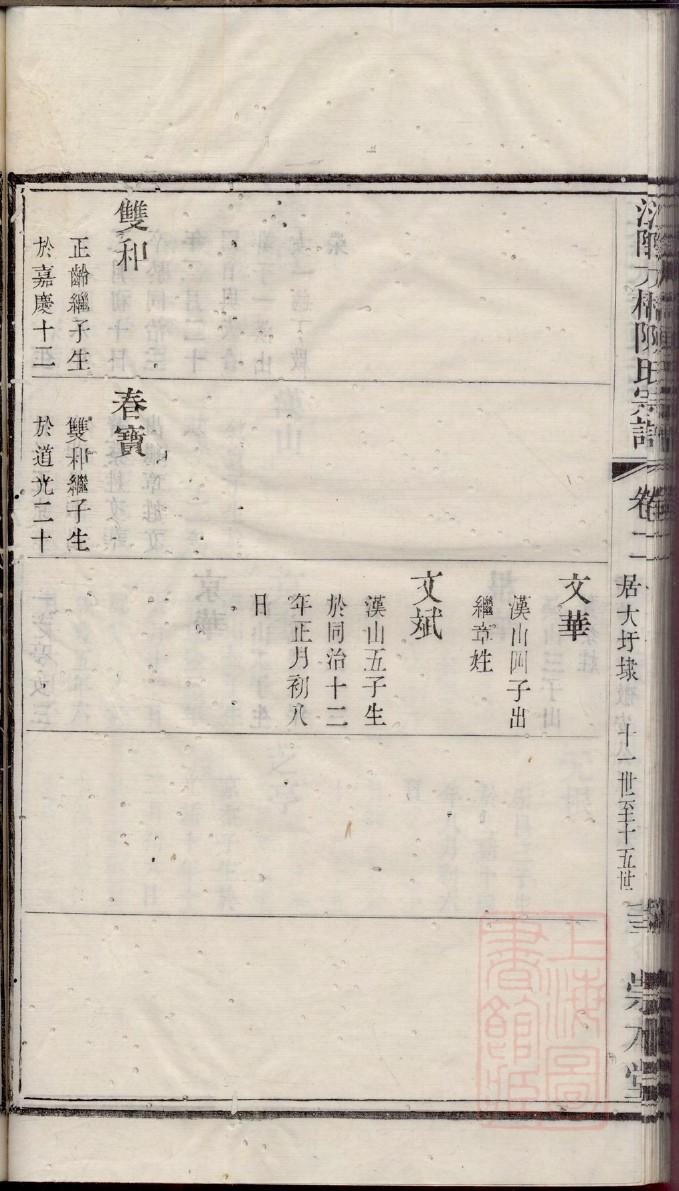 陳氏宗譜
卷二
居大圩埭
十一世至十五世
崇本堂
文華
漢山四子出
繼章姓
文斌
漢山五子生
於同治十二
年正月初八
日
春寶
雙和繼子生
於道光二十
雙和
正齡繼子生
於嘉慶十二
上海圖
書館藏